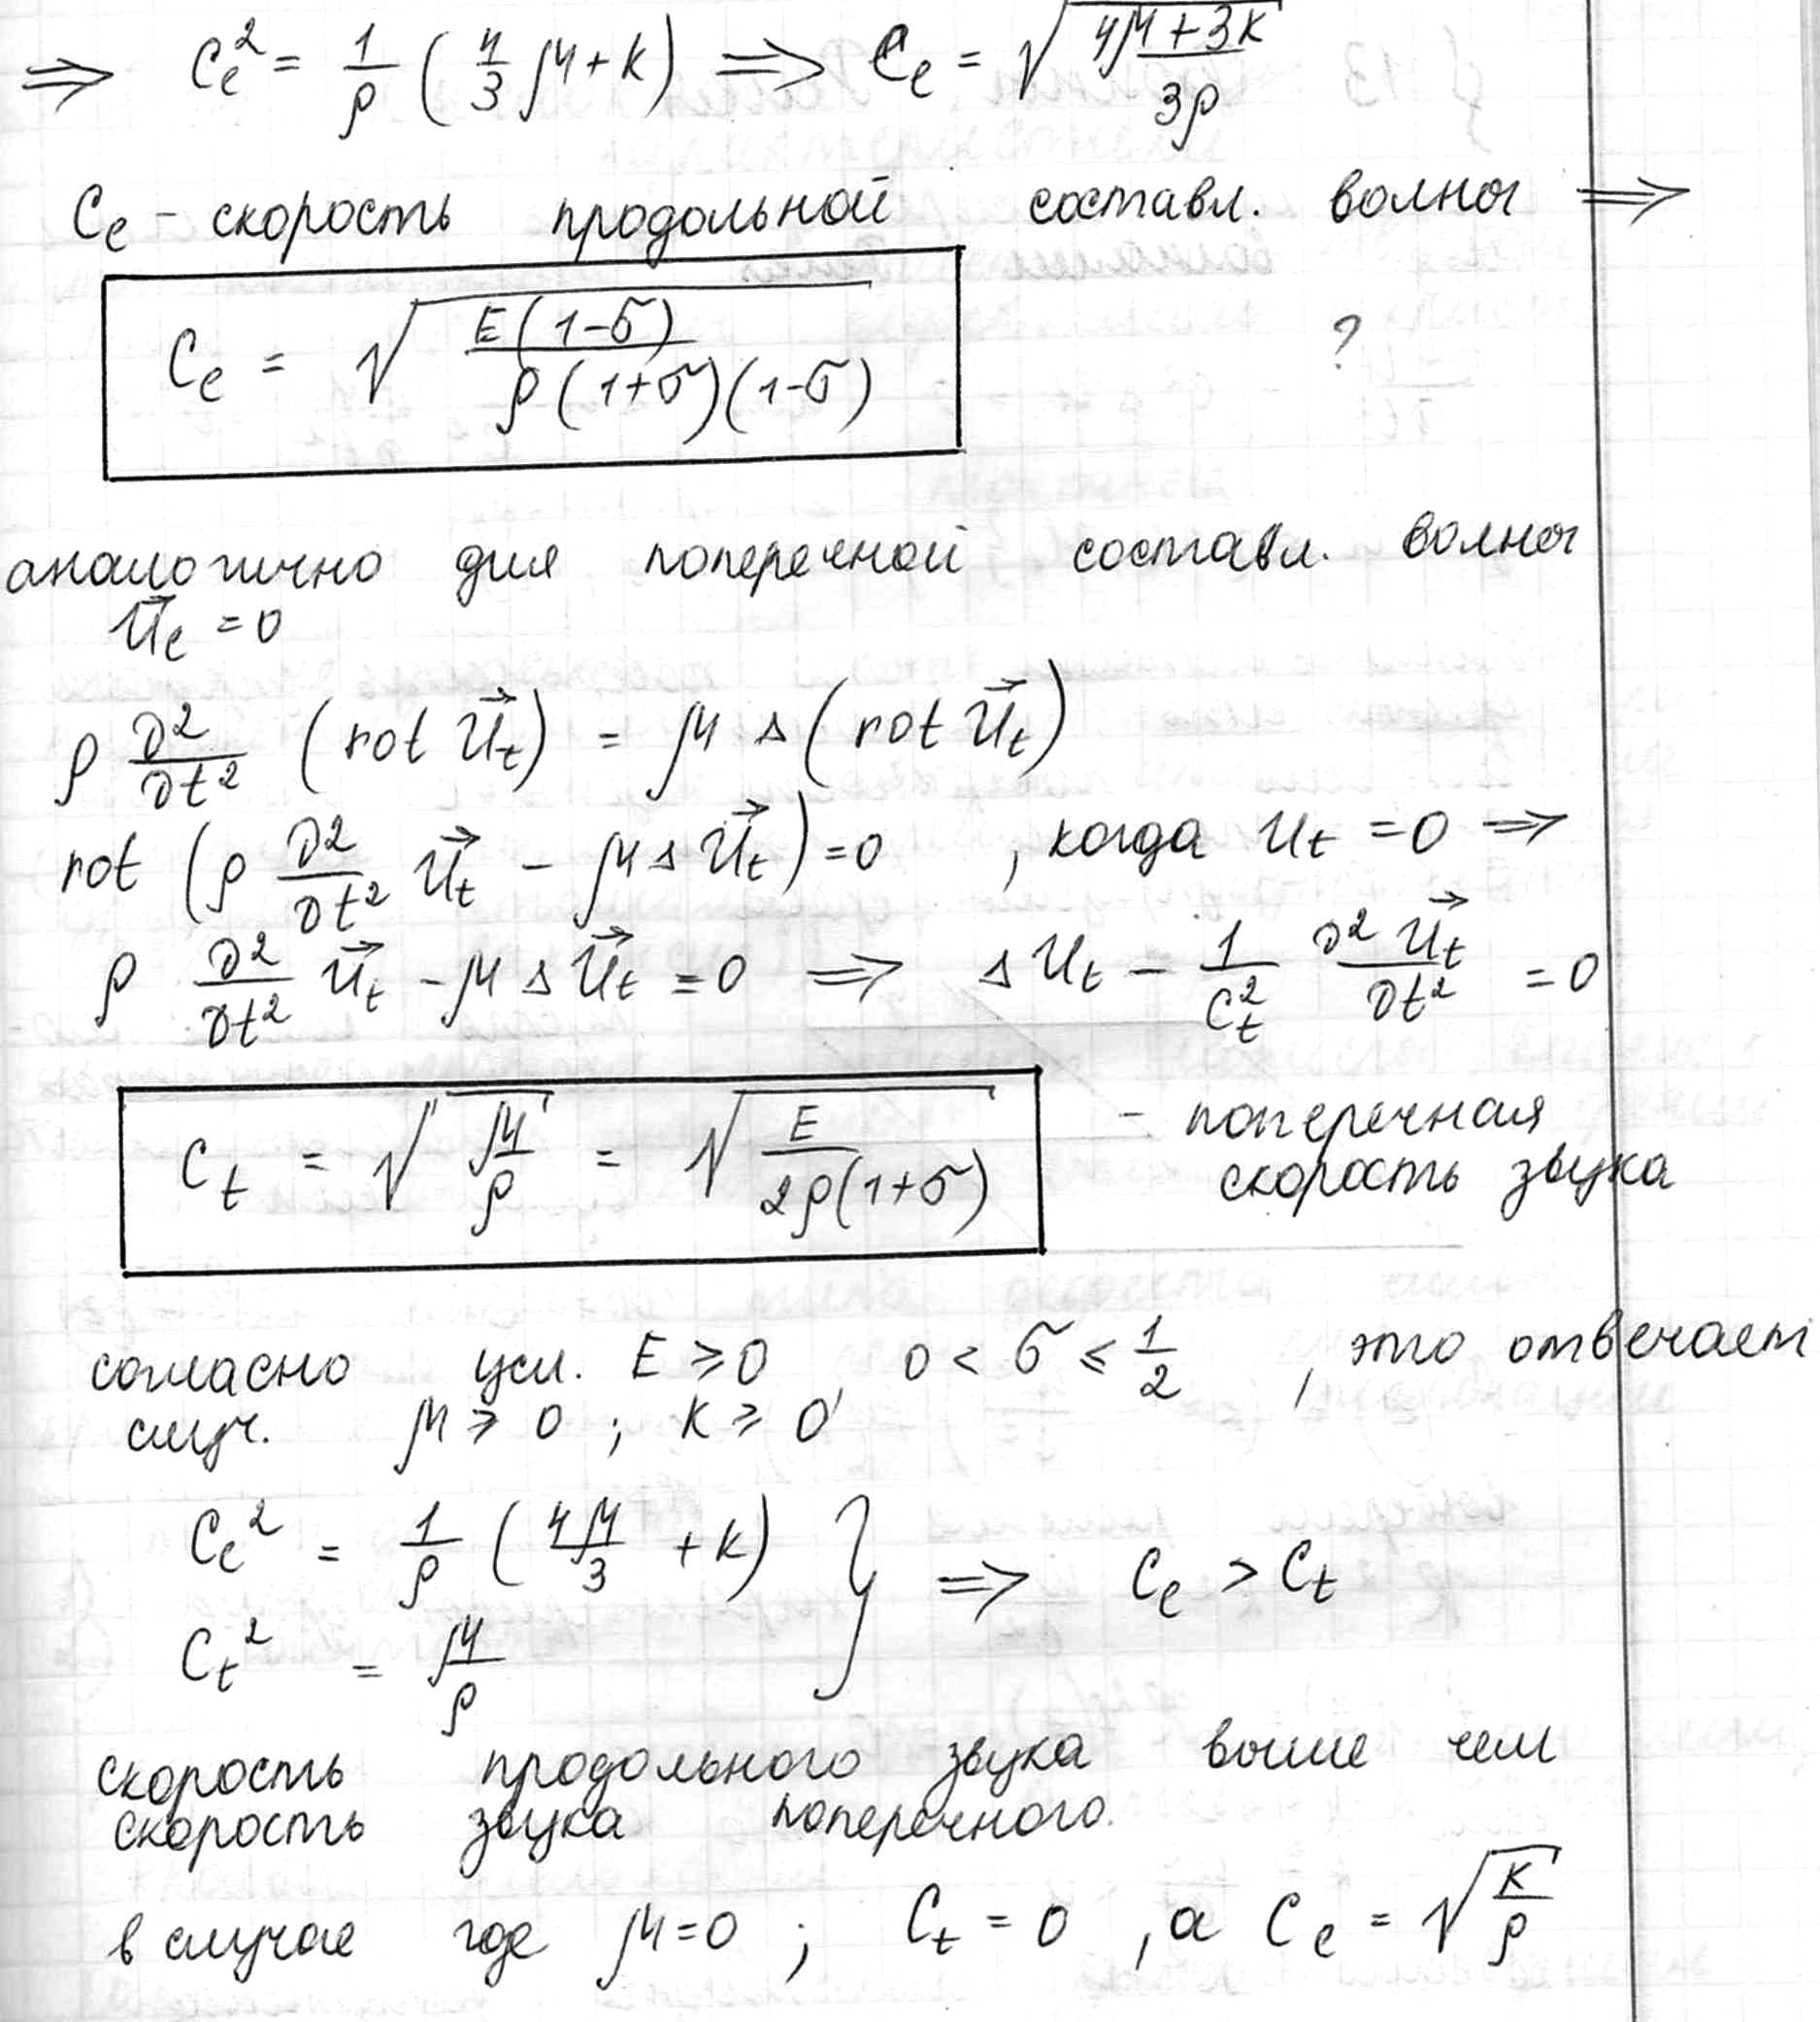 ⇒ C_e² = 1/ρ (4/3 μ + K) ⇒ C_e = √((4μ+3K)/(3ρ))
C_e - скорость продольной составл. волны ⇒
C_e = √(E(1-σ)/(ρ(1+σ)(1-σ))) ?
аналогично для поперечной составл. волны
u⃗_e = 0
ρ ∂²/∂t² (rot u⃗_t) = μ Δ (rot u⃗_t)
rot (ρ ∂²/∂t² u⃗_t - μ Δ u⃗_t) = 0 , когда u_t = 0 ⇒
ρ ∂²/∂t² u⃗_t - μ Δ u⃗_t = 0 ⇒ Δ u_t - 1/C_t² ∂² u⃗_t/∂t² = 0
C_t = √(μ/ρ) = √(E/(2ρ(1+σ))) - поперечная
скорость звука
согласно усл. E ⩾ 0 0 < σ ⩽ 1/2 , это отвечает
случ. μ ⩾ 0 ; K ⩾ 0
C_e² = 1/ρ (4μ/3 + K) } ⇒ C_e > C_t
C_t² = μ/ρ
скорость продольного звука выше чем
скорость звука поперечного.
в случае где μ = 0 ; C_t = 0 , а C_e = √(K/ρ)